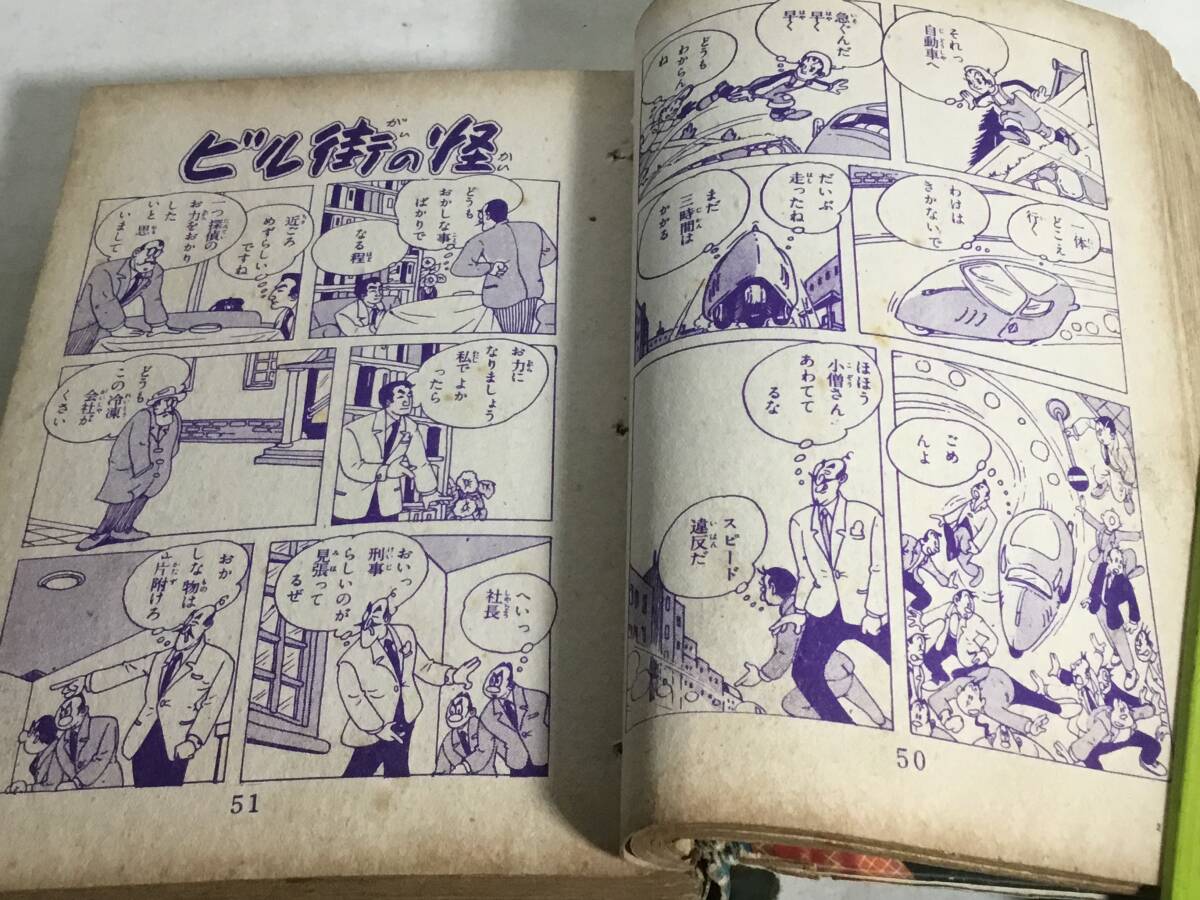 それっ
自動車へ
急ぐんだ
早く
早く
どうも
わからん
ね
一体
どこえ
行く
わけは
きかないで
だいぶ
走ったね
まだ
三時間は
かかる
ごめ
んよ
ほほう
小僧さん
あわてて
るな
スピード
違反だ
50
ビル街の怪
どうも
おかしな事
ばかりで
なる程
近ごろ
めずらしい
ですね
一つ探偵の
お力をおかり
した
いと思
いまして
お力に
なりましょう
私でよか
ったら
どうも
この冷凍
会社が
くさい
へいっ
社長
おいっ
刑事
らしいのが
見張って
るぜ
おか
しな物は
片附けろ
51